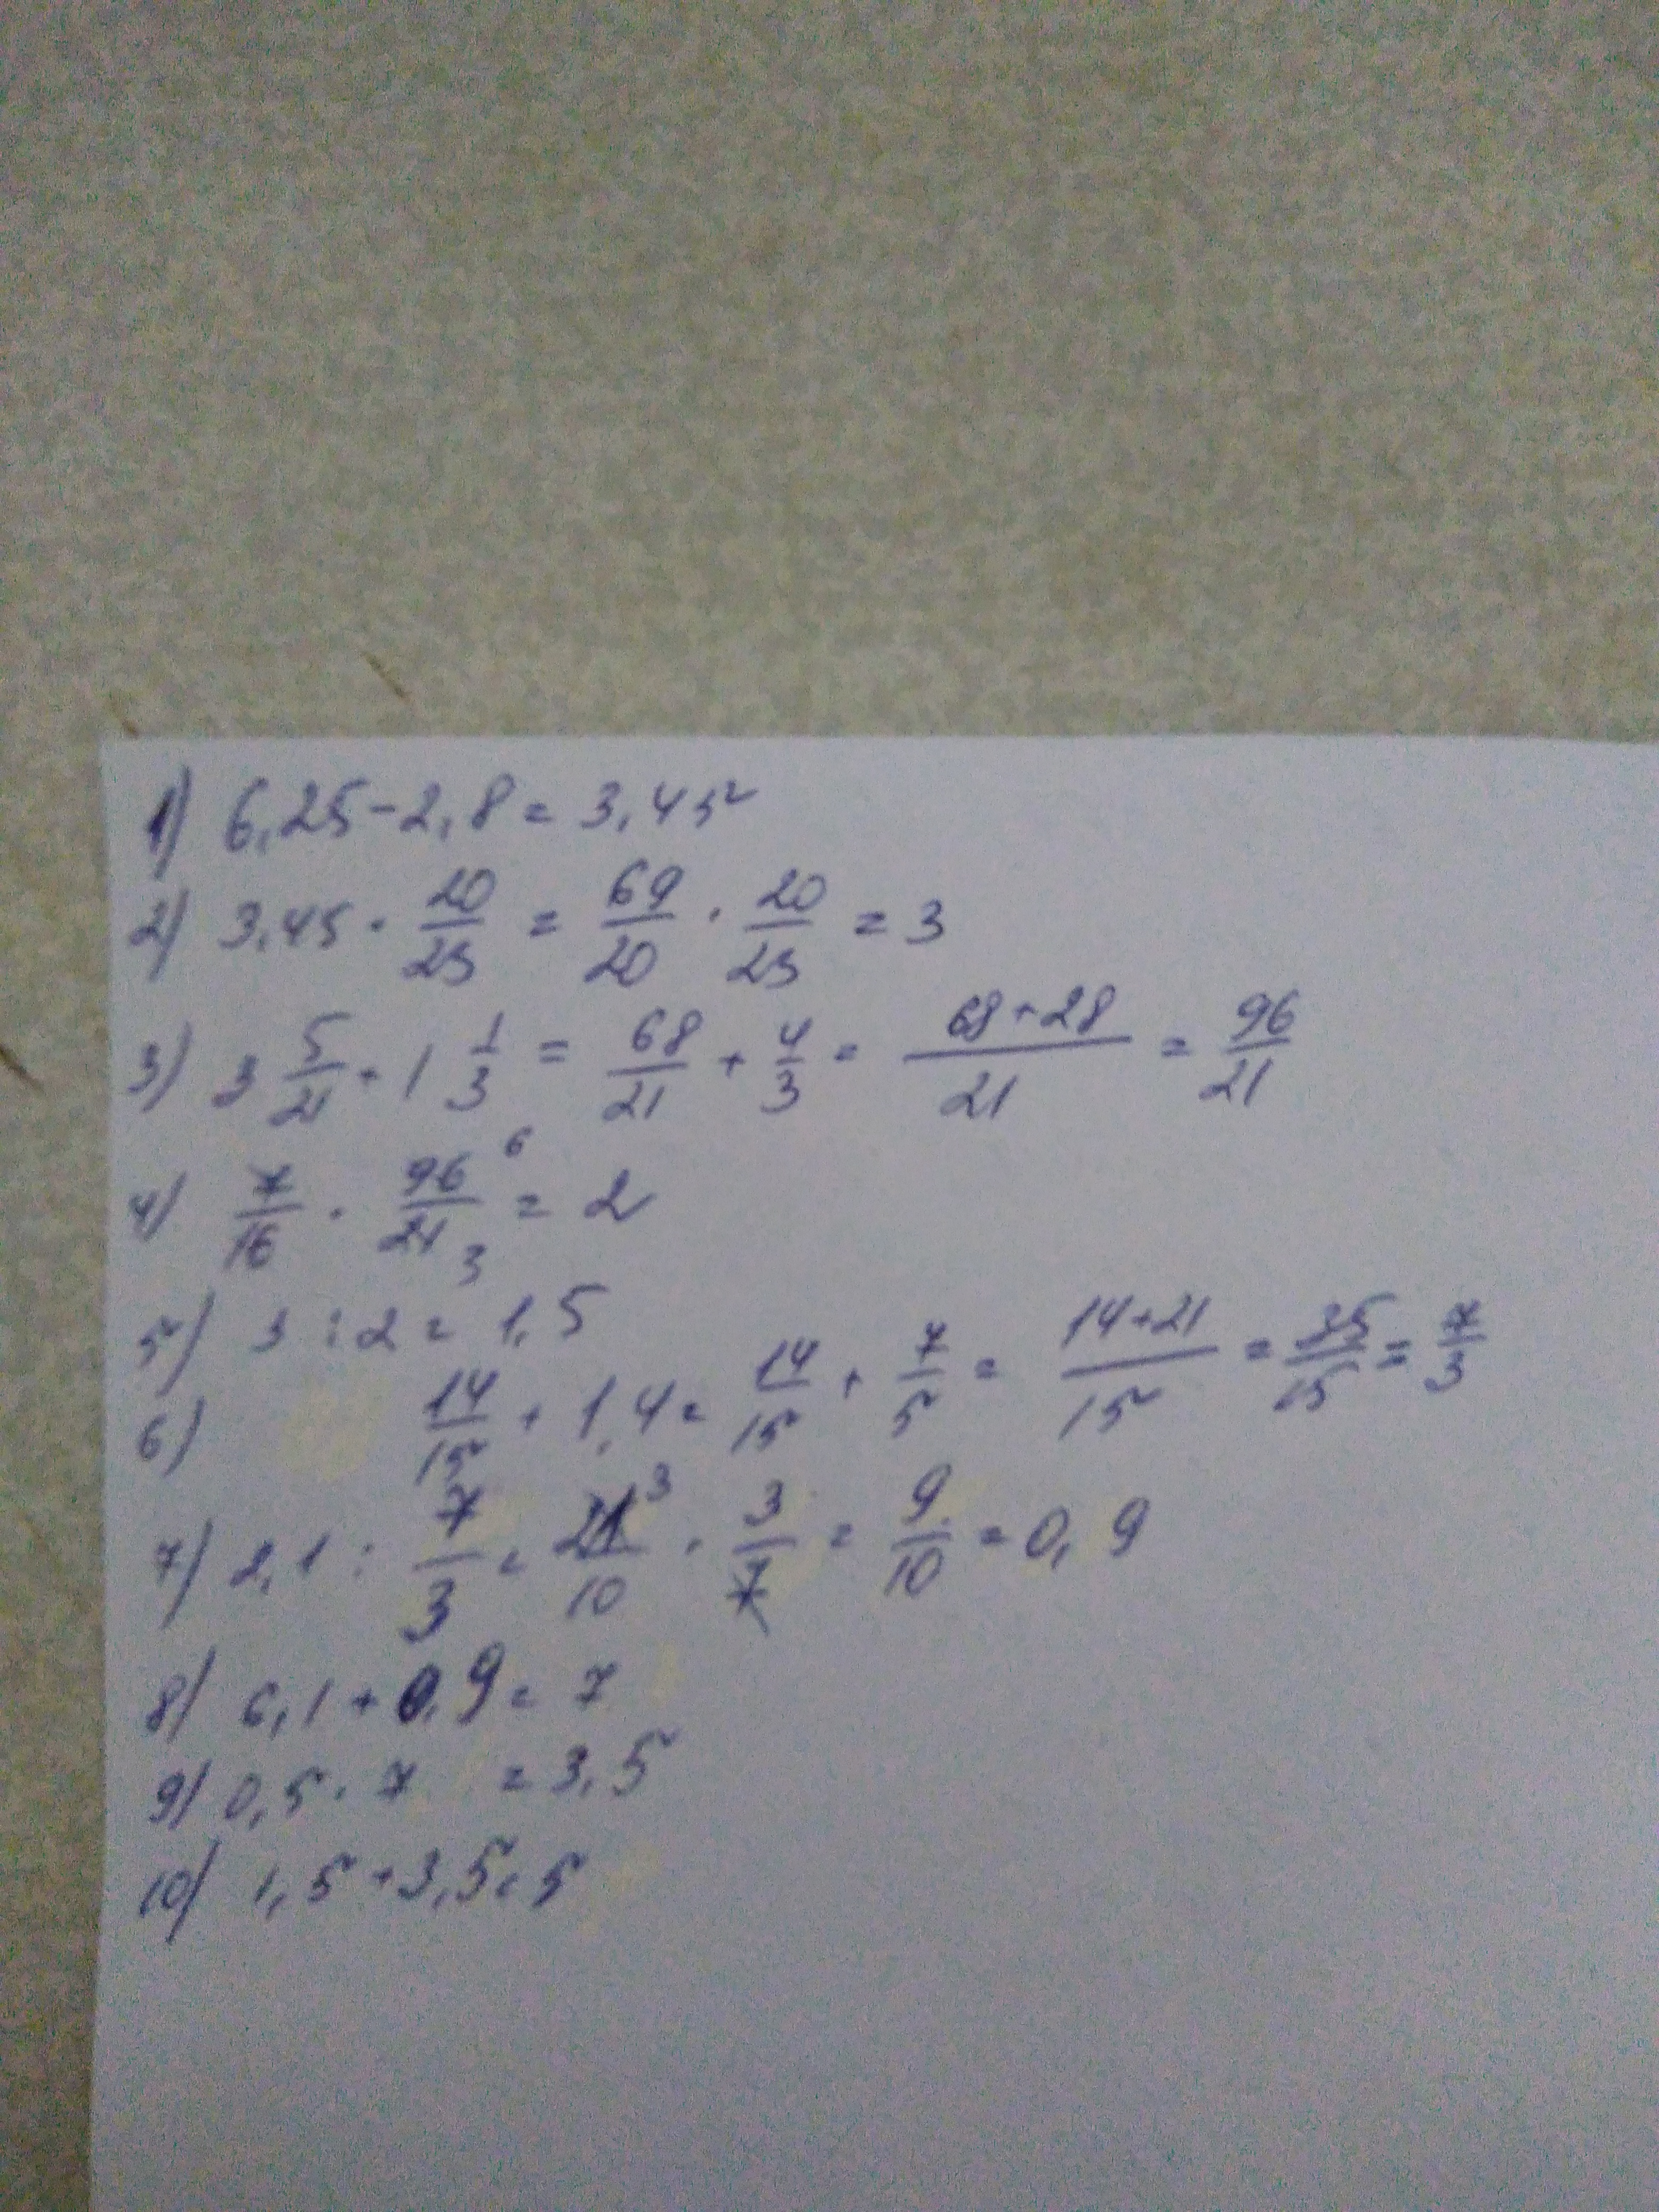 1) 6,25-2,8=3,45
2) 3,45 · 20/23 = 69/20 · 20/23 = 3
3) 3 5/21 + 1 1/3 = 68/21 + 4/3 = 68+28/21 = 96/21
4) 7/16 · 96 6/21 3 = 2
5) 3 : 2 = 1,5
6) 14/15 + 1,4 = 14/15 + 7/5 = 14+21/15 = 35/15 = 7/3
7) 2,1 : 7/3 = 21 3/10 · 3/7 = 9/10 = 0,9
8) 6,1 + 0,9 = 7
9) 0,5 · 7 = 3,5
10) 1,5 + 3,5 = 5